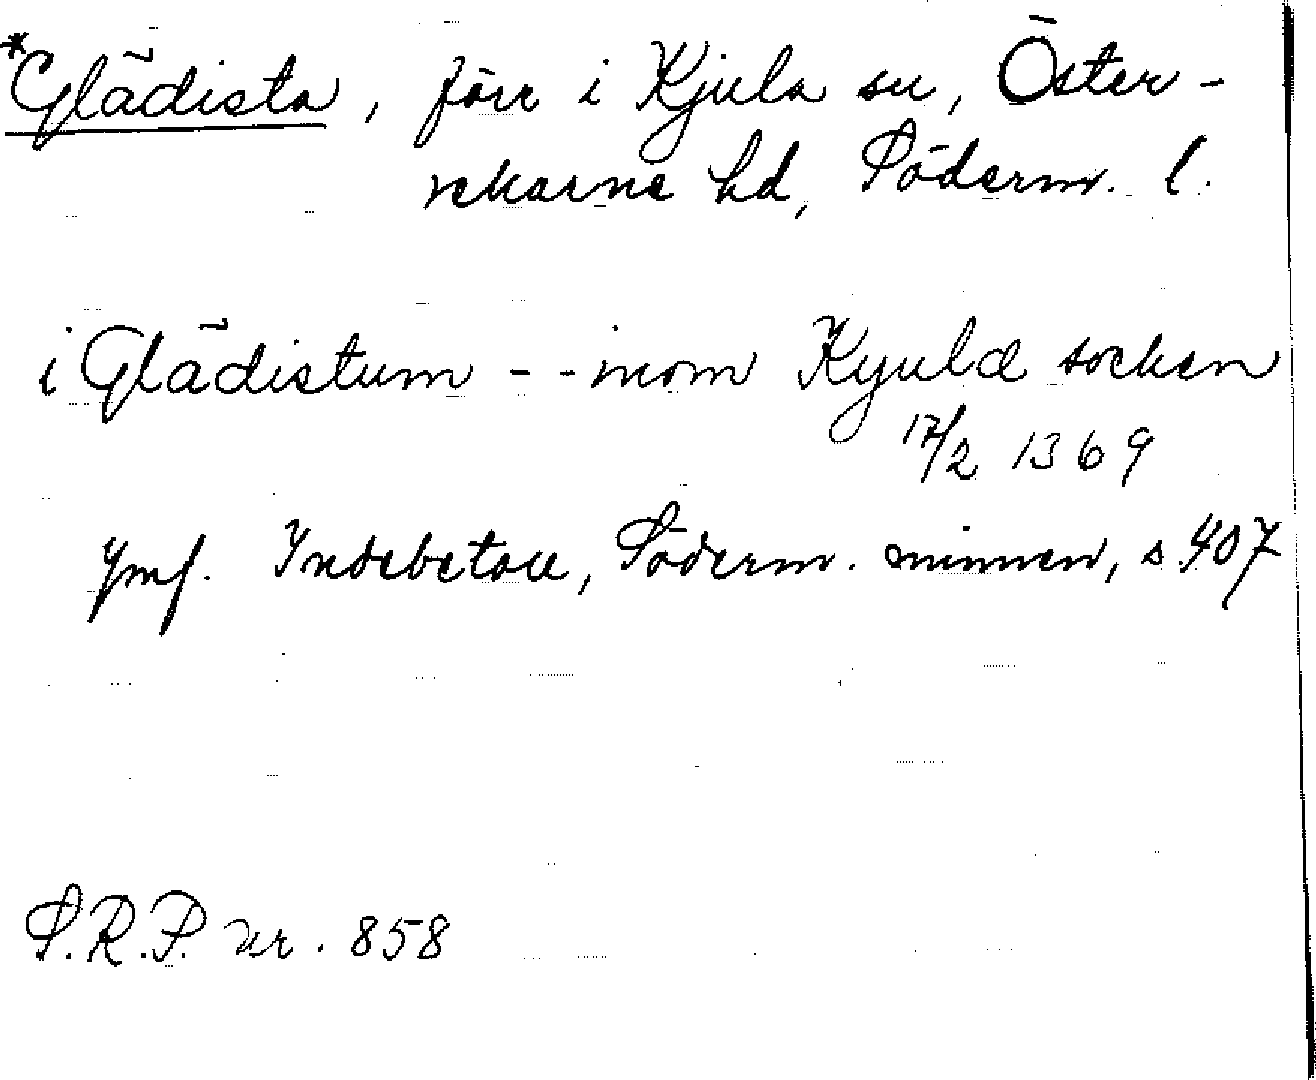 *Glädista, förr i Kjula sn, Öster-
rekarne hd, Söderm. l.
i Glädistum - - inom Kyulæ socken
17/2 1369
Jmf. Indebetou, Söderm. minnen, s. 407
S.R.P. nr. 858